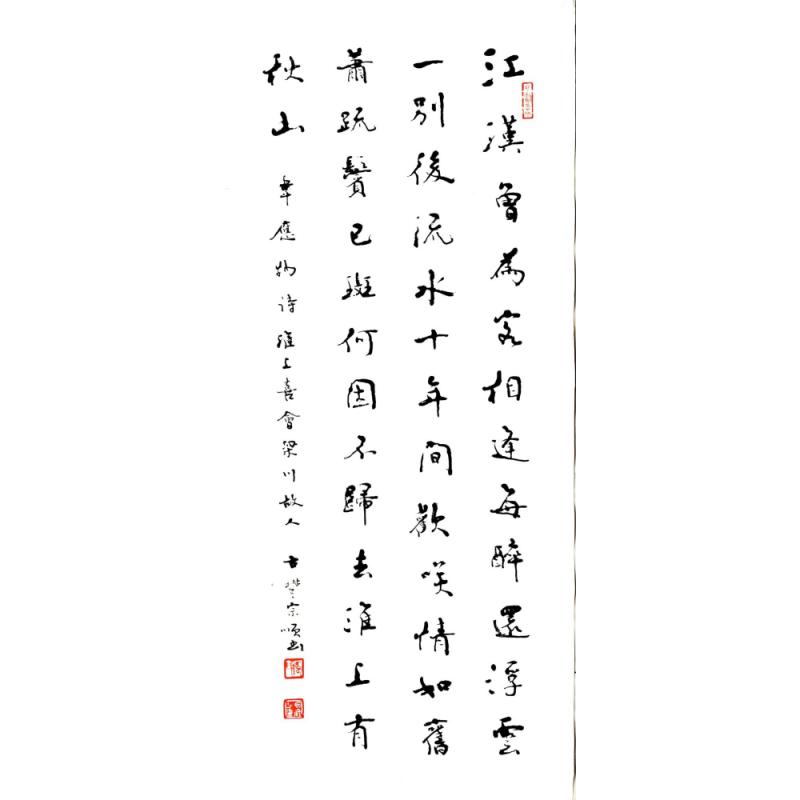 江漢曾為客相逢每醉還浮雲
一別後流水十年間歡咲情如舊
蕭疏鬢已斑何因不歸去淮上有
秋山
韋應物詩淮上喜會梁川故人
宗順書